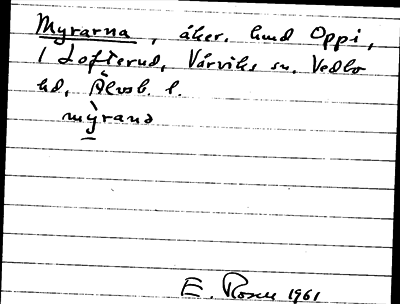 Myrarna, åker. hmd Oppi,
1 Lofterud, Vårviks sn. Vedbo
hd, Älvsb. l.
mỳrana
E. Rosen 1961